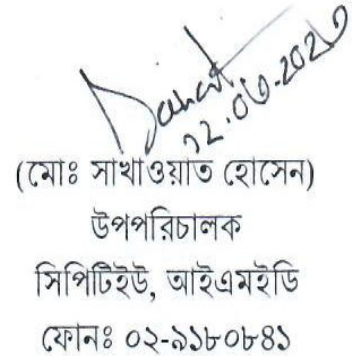 (মোঃ সাখাওয়াত হোসেন)
উপপরিচালক
সিপিটিইউ, আইএমইডি
ফোনঃ ০২-৯১৮০৮৪১